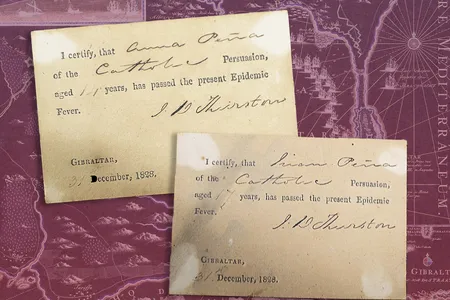 I certify, that Anna Peña
of the Catholic Persuasion,
aged years, has passed the present Epidemic
Fever.
J D Thurston
GIBRALTAR,
December, 1828.
I certify, that Peña
of the Catholic Persuasion,
aged 17 years, has passed the present Epidemic
Fever.
J. D Thurston
GIBRALTAR,
31st December, 1828.
MEDITERRANEUM
GIBRALTAR